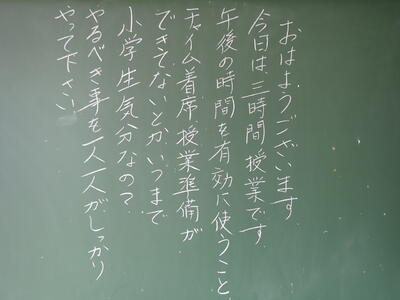 おはようございます
今日は、三時間授業です
午後の時間を有効に使うこと
チャイム着席、授業準備が
できてないとかいつまで
小学生気分なの？
やるべき事を一人一人がしっかり
やって下さい